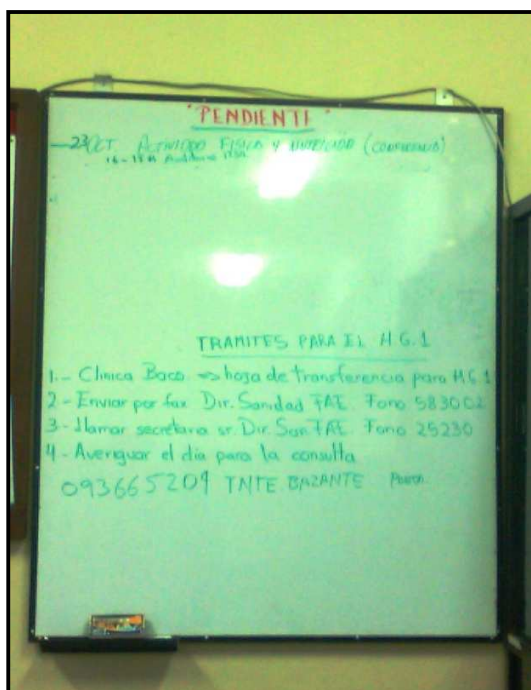 "PENDIENTE"
- 23 OCT. ACTIVIDAD FISICA Y NUTRICIÓN (CONFERENCIA)
16-18H Auditorio
TRAMITES PARA EL H.G.1
1.- Clinica Baco. => hoja de transferencia para H.G.1
2- Enviar por fax Dir. Sanidad FAE. Fono 583002
3- Llamar secretaria sr. Dir. San FAE. Fono 25230
4- Averiguar el dia para la consulta
093665204 TNTE. BAZANTE